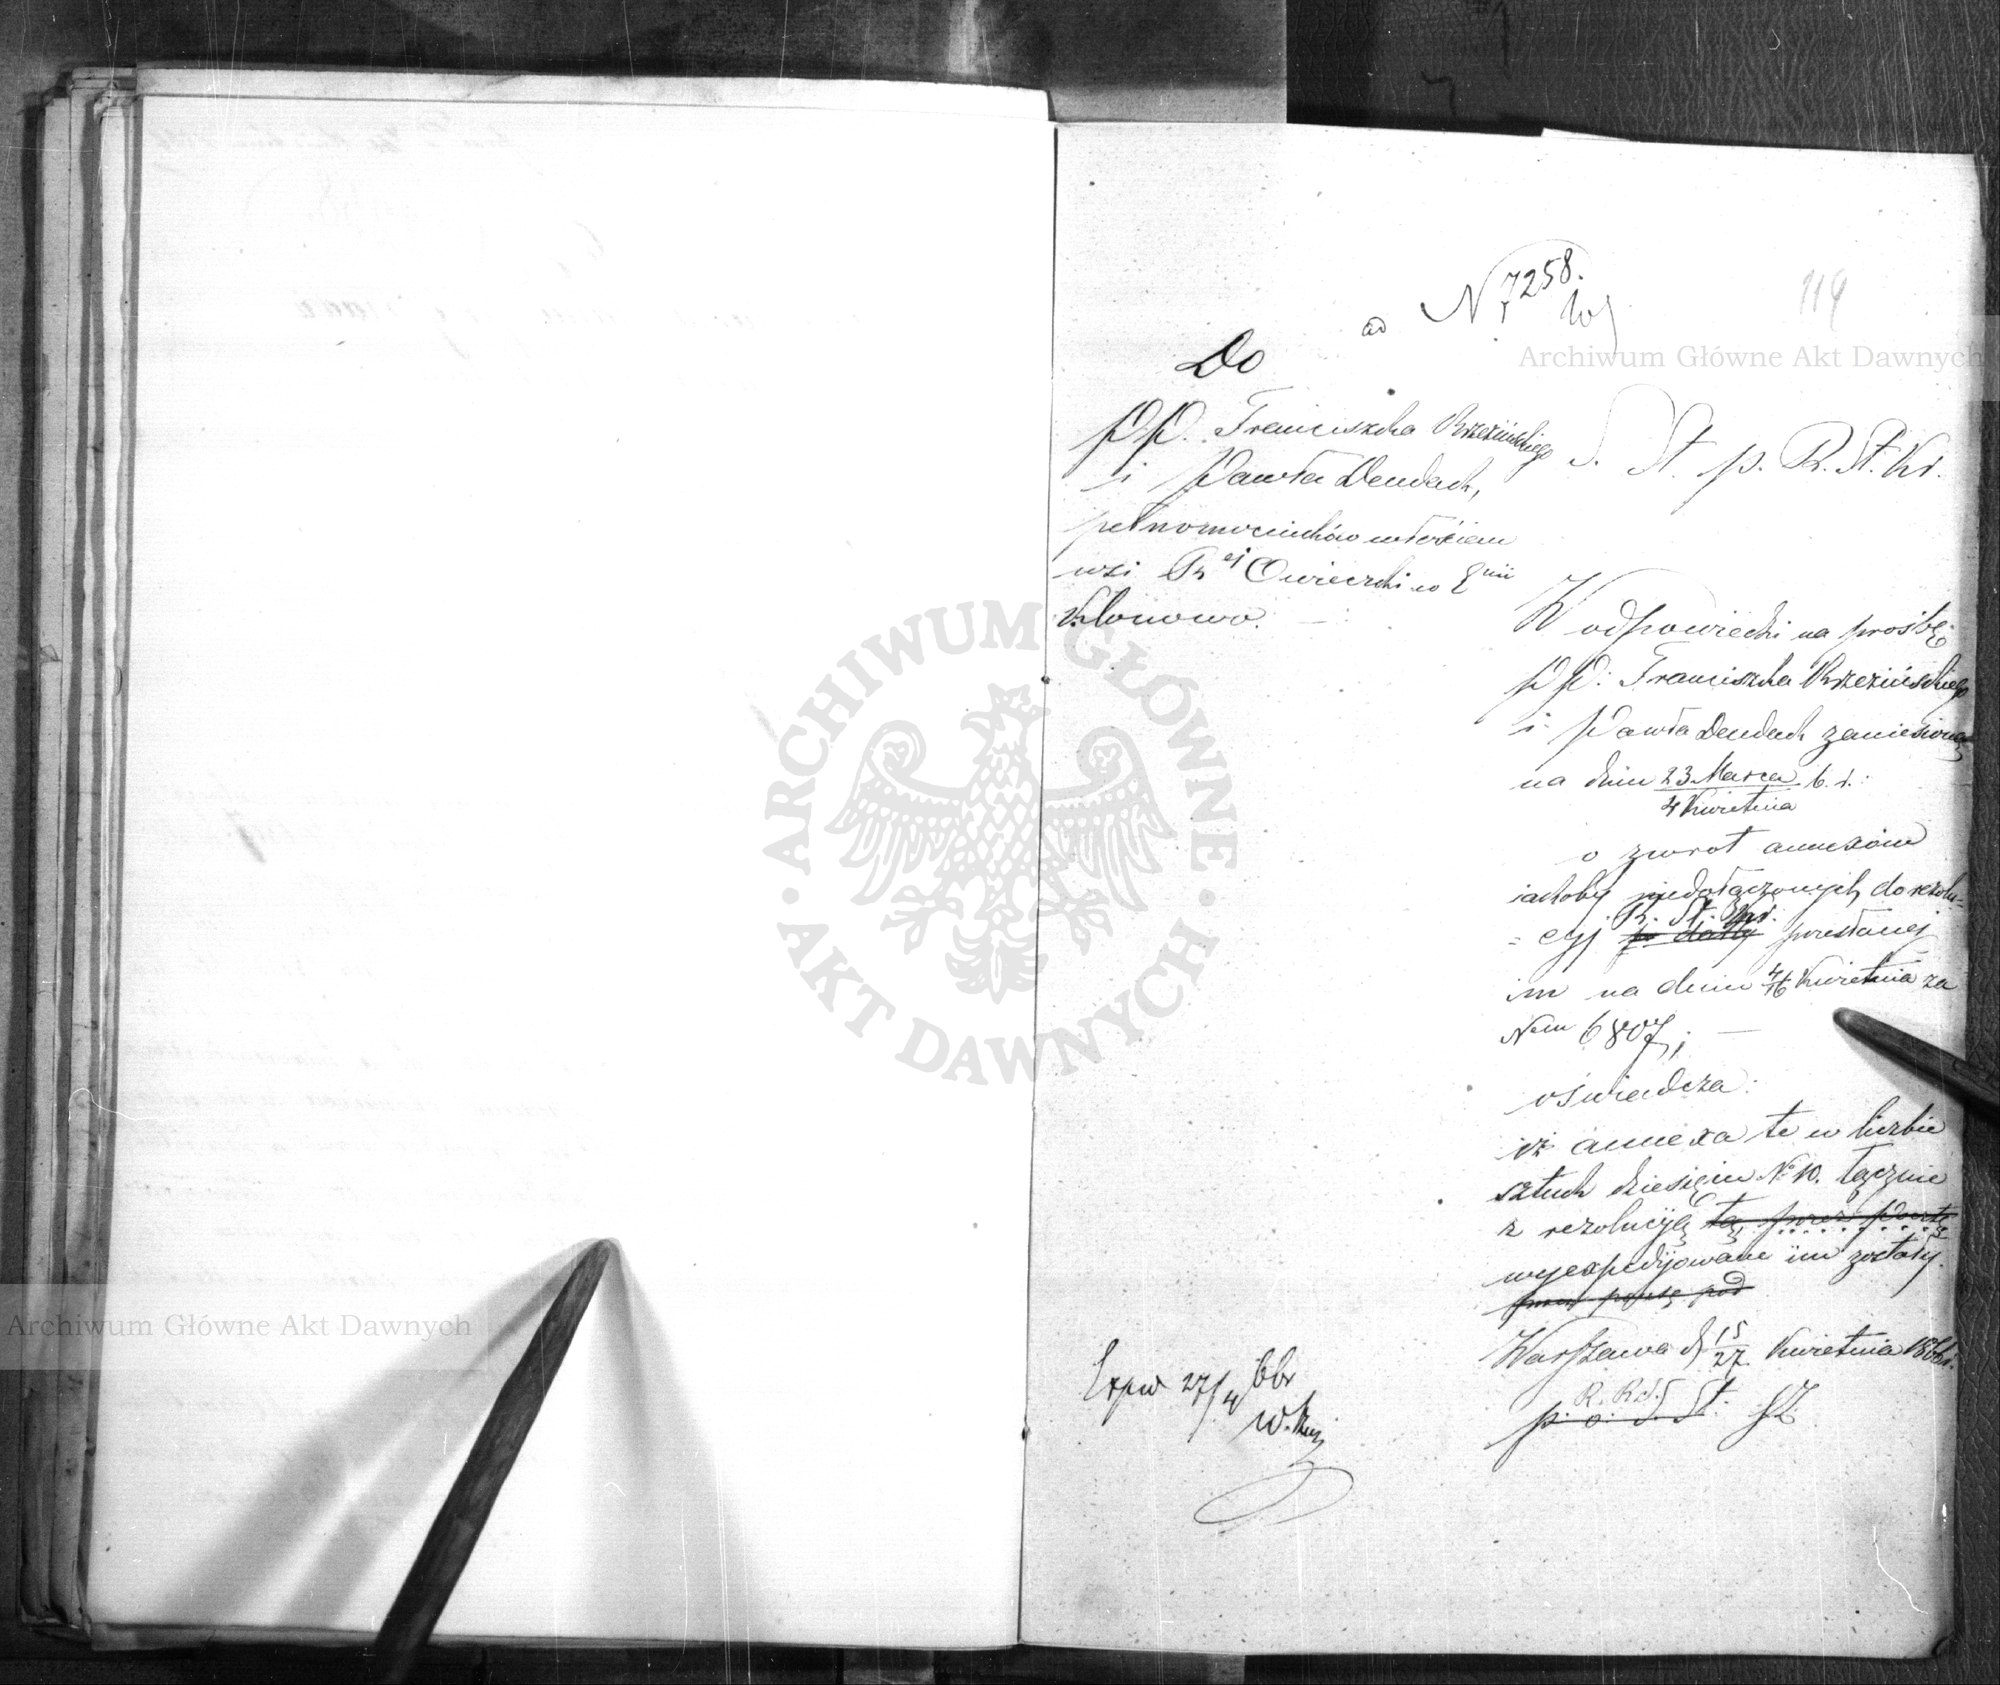 ad N 7258.
119
Archiwum Główne Akt Dawnych
Do
PP. Franciszka Brzezińskiego
i Pawła Dendach,
pełnomocników włościan
wsi Owieczki w
Klonowo.
S. St. p. R. St. Kr.
W odpowiedzi na prośbę
PP. Franciszka Brzezińskiego
i Pawła Dendach zaniesioną
na dniu 23 Marca b. r.:
4 Kwietnia
o zwrot annexów
jakoby niedołączonych do rezolu=
R. St. Kr.
=cyj po daty przesłanej
im na dniu 4/16 Kwietnia za
Nem 6807,
oświadcza:
iż annexa te w liczbie
sztuk dziesięciu No 10. łącznie
z rezolucyją tą, przez Pocztę
wyexpedyjowane im zostały.
przez pocztę pod
Warszawa d. 15/27 Kwietnia 1866 r.
R. Rd.
p. o. S. St.
Expw 27/4
ARCHIWUM GŁÓWNE · AKT DAWNYCH ·
Archiwum Główne Akt Dawnych